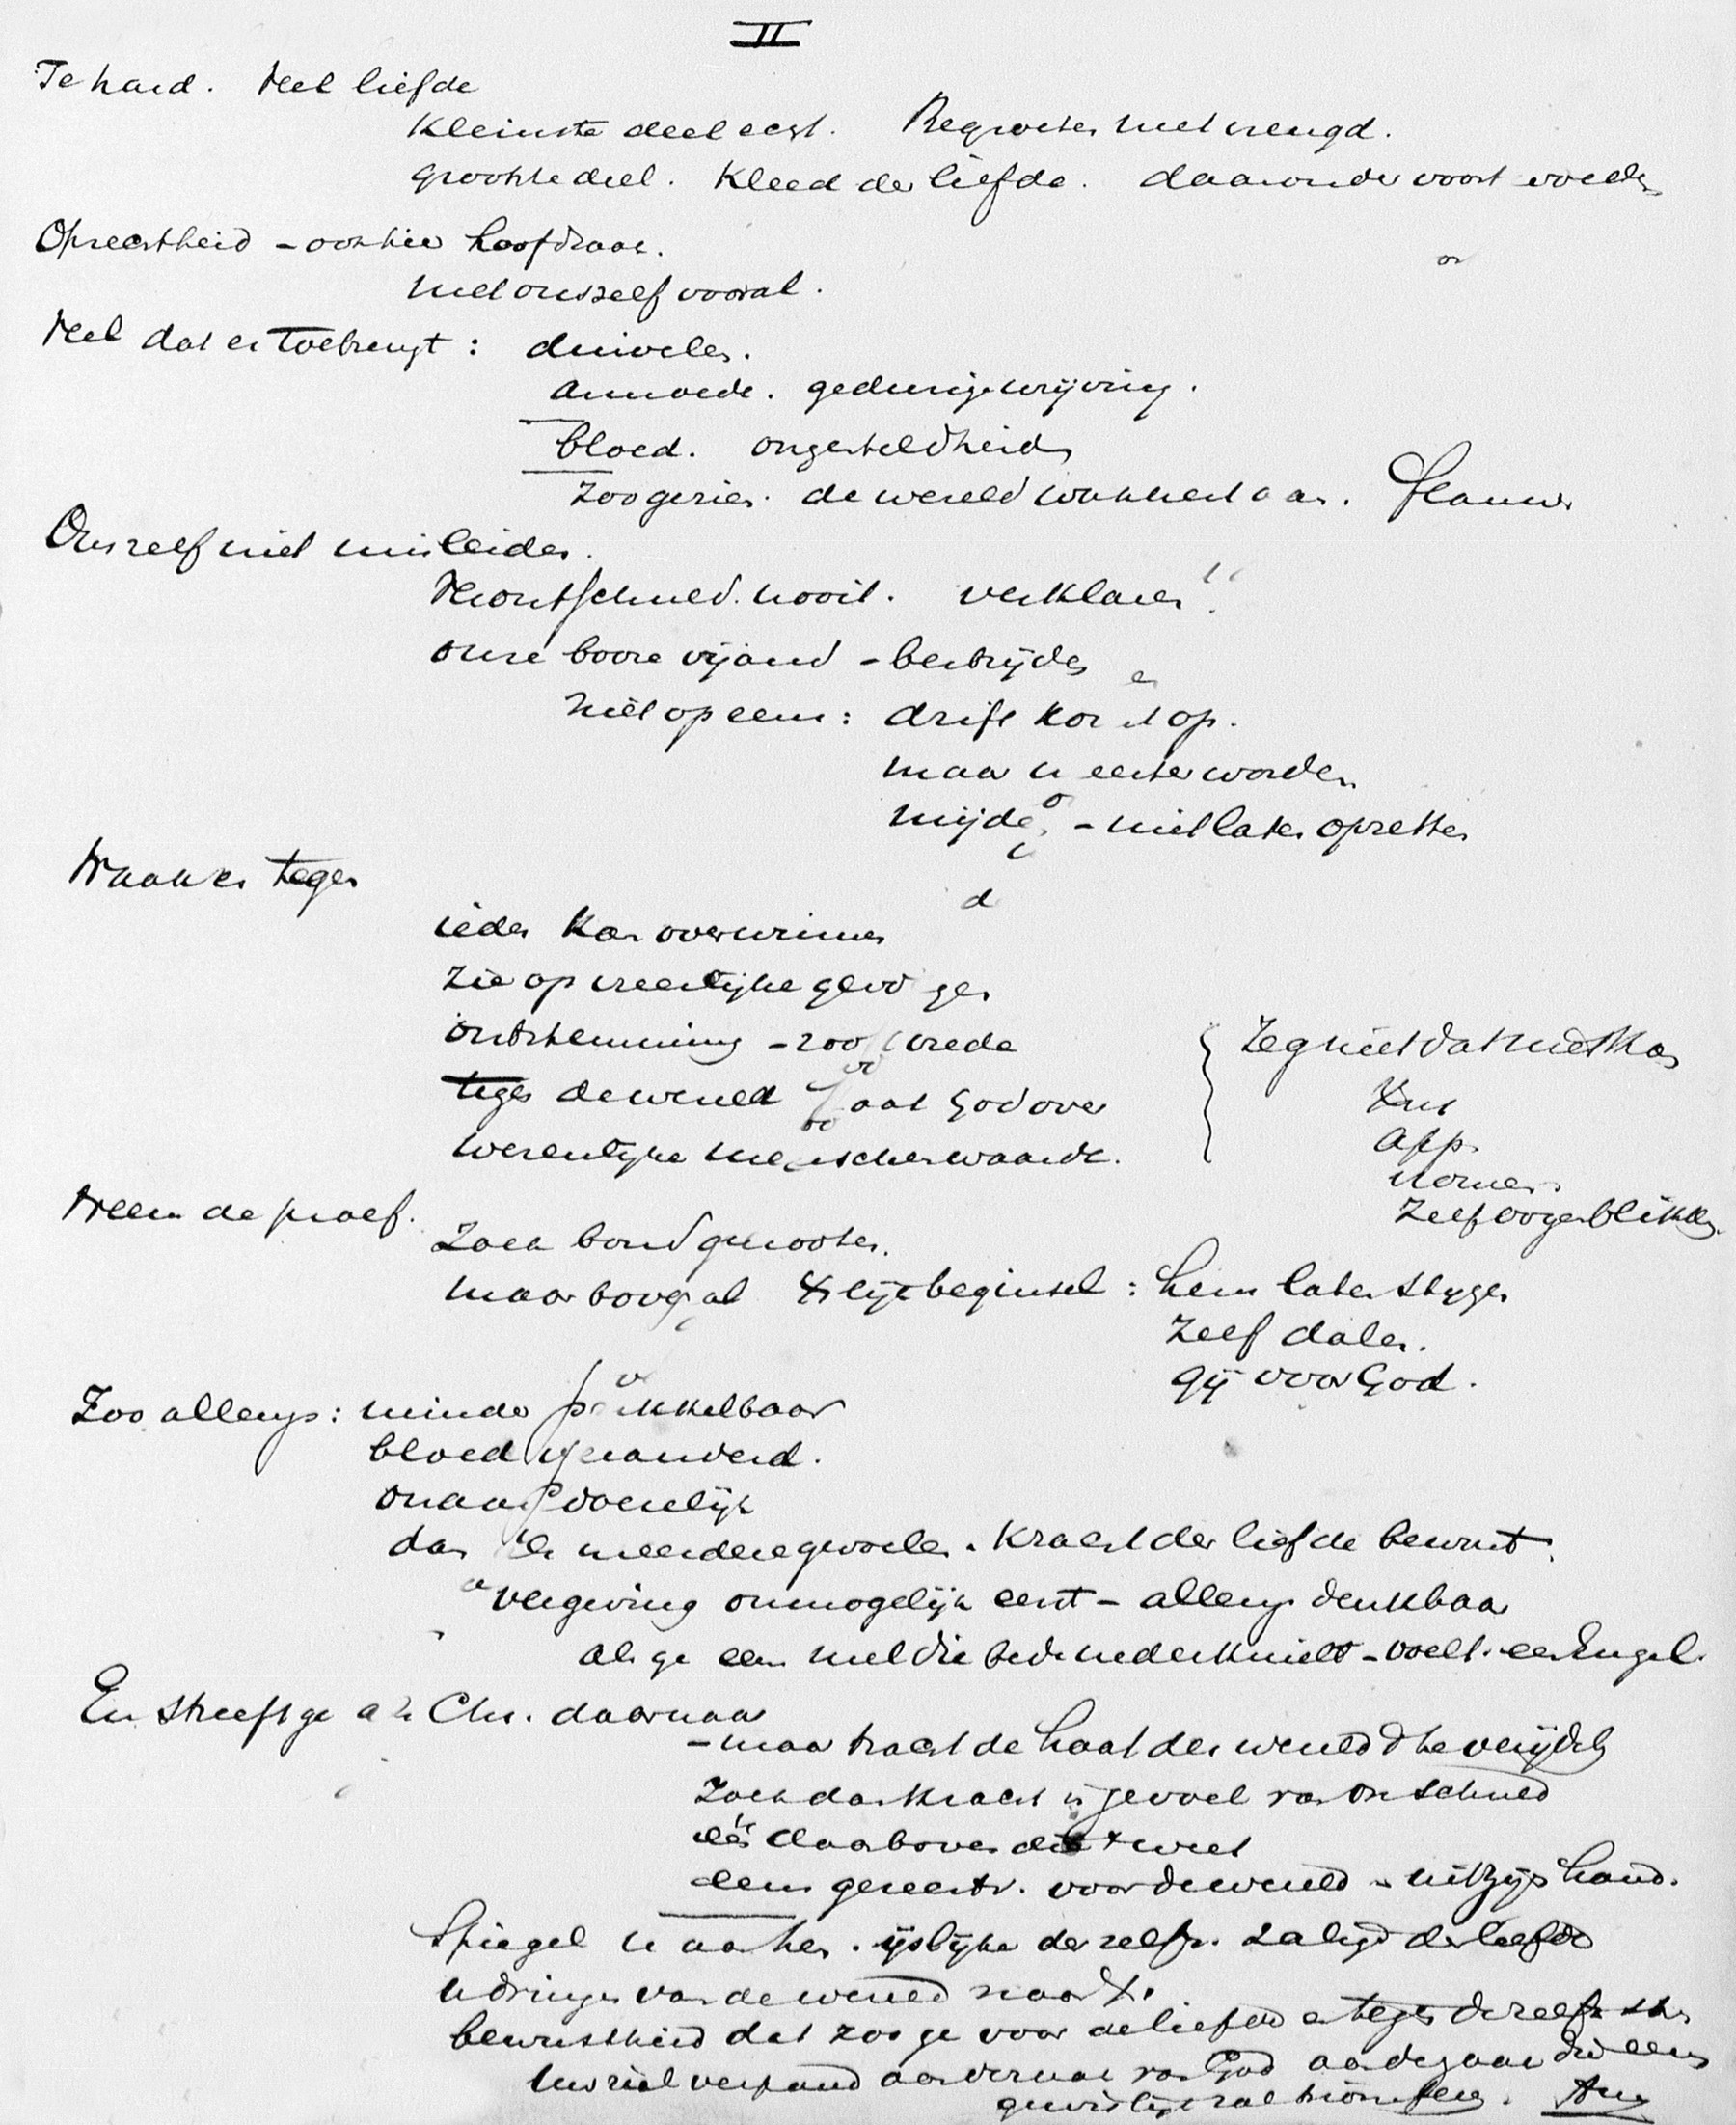 II
Te hard. Veel liefde
Kleinste deel eerst. Begroeten met vreugd.
grootste deel. Kleed der liefde. daaronder voort woeden
Oprechtheid – ook hier hoofdzaak.
met onszelf vooral.
Veel dat er toe brengt: duivelen.
armoede. gedurige wrijving.
bloed. ongesteldheid
zoo gezien. de wereld wakkert aan. flauw
Onszelf niet misleiden.
Verontschuld. nooit. verklaren
onze booze vijand – bestrijden
niet op eens: drift kor op.
maar u eerder worden
mijden – niet laten opzetten
Waak er tegen
ieder kan overwinnen
zie op vreeselijke gevolgen
ontstemming – zoo wrede
tegen de wereld staat God over
wezenlijke menschenwaarde.
Zeg niet dat niet kan
App.
zelf oogenblikken
Neem de proef.
Zoek bondgenooten.
maar bovenal Xlijk beginsel: hem laten stijgen
zelf dalen.
gij voor God.
Zoo allengs: minder prikkelbaar
bloed veranderd.
onaandoenlijk
dan meerdere gevoelen. kracht der liefde bewust.
vergeving onmogelijk eerst – allengs denkbaar
als ge eens met die bede nederknielt – voelt. een Engel.
En streeft ge als Chr. daarnaar
– maar tracht de haat der wereld te verijdelen
Zoek dan kracht in gevoel van onschuld
één daarboven die 't weet
eens gerecht. voor de wereld uit Zijn hand.
Spiegel u aan hen. ijslijke der zelfz. zaligh. der liefde
u dringen van de wereld naar X.
bewustheid dat zoo ge voor de liefde en tegen de zelfz.
verpand aan de zaak van God aan de zaak die eens
gewisselijk zal triomfeeren. Am